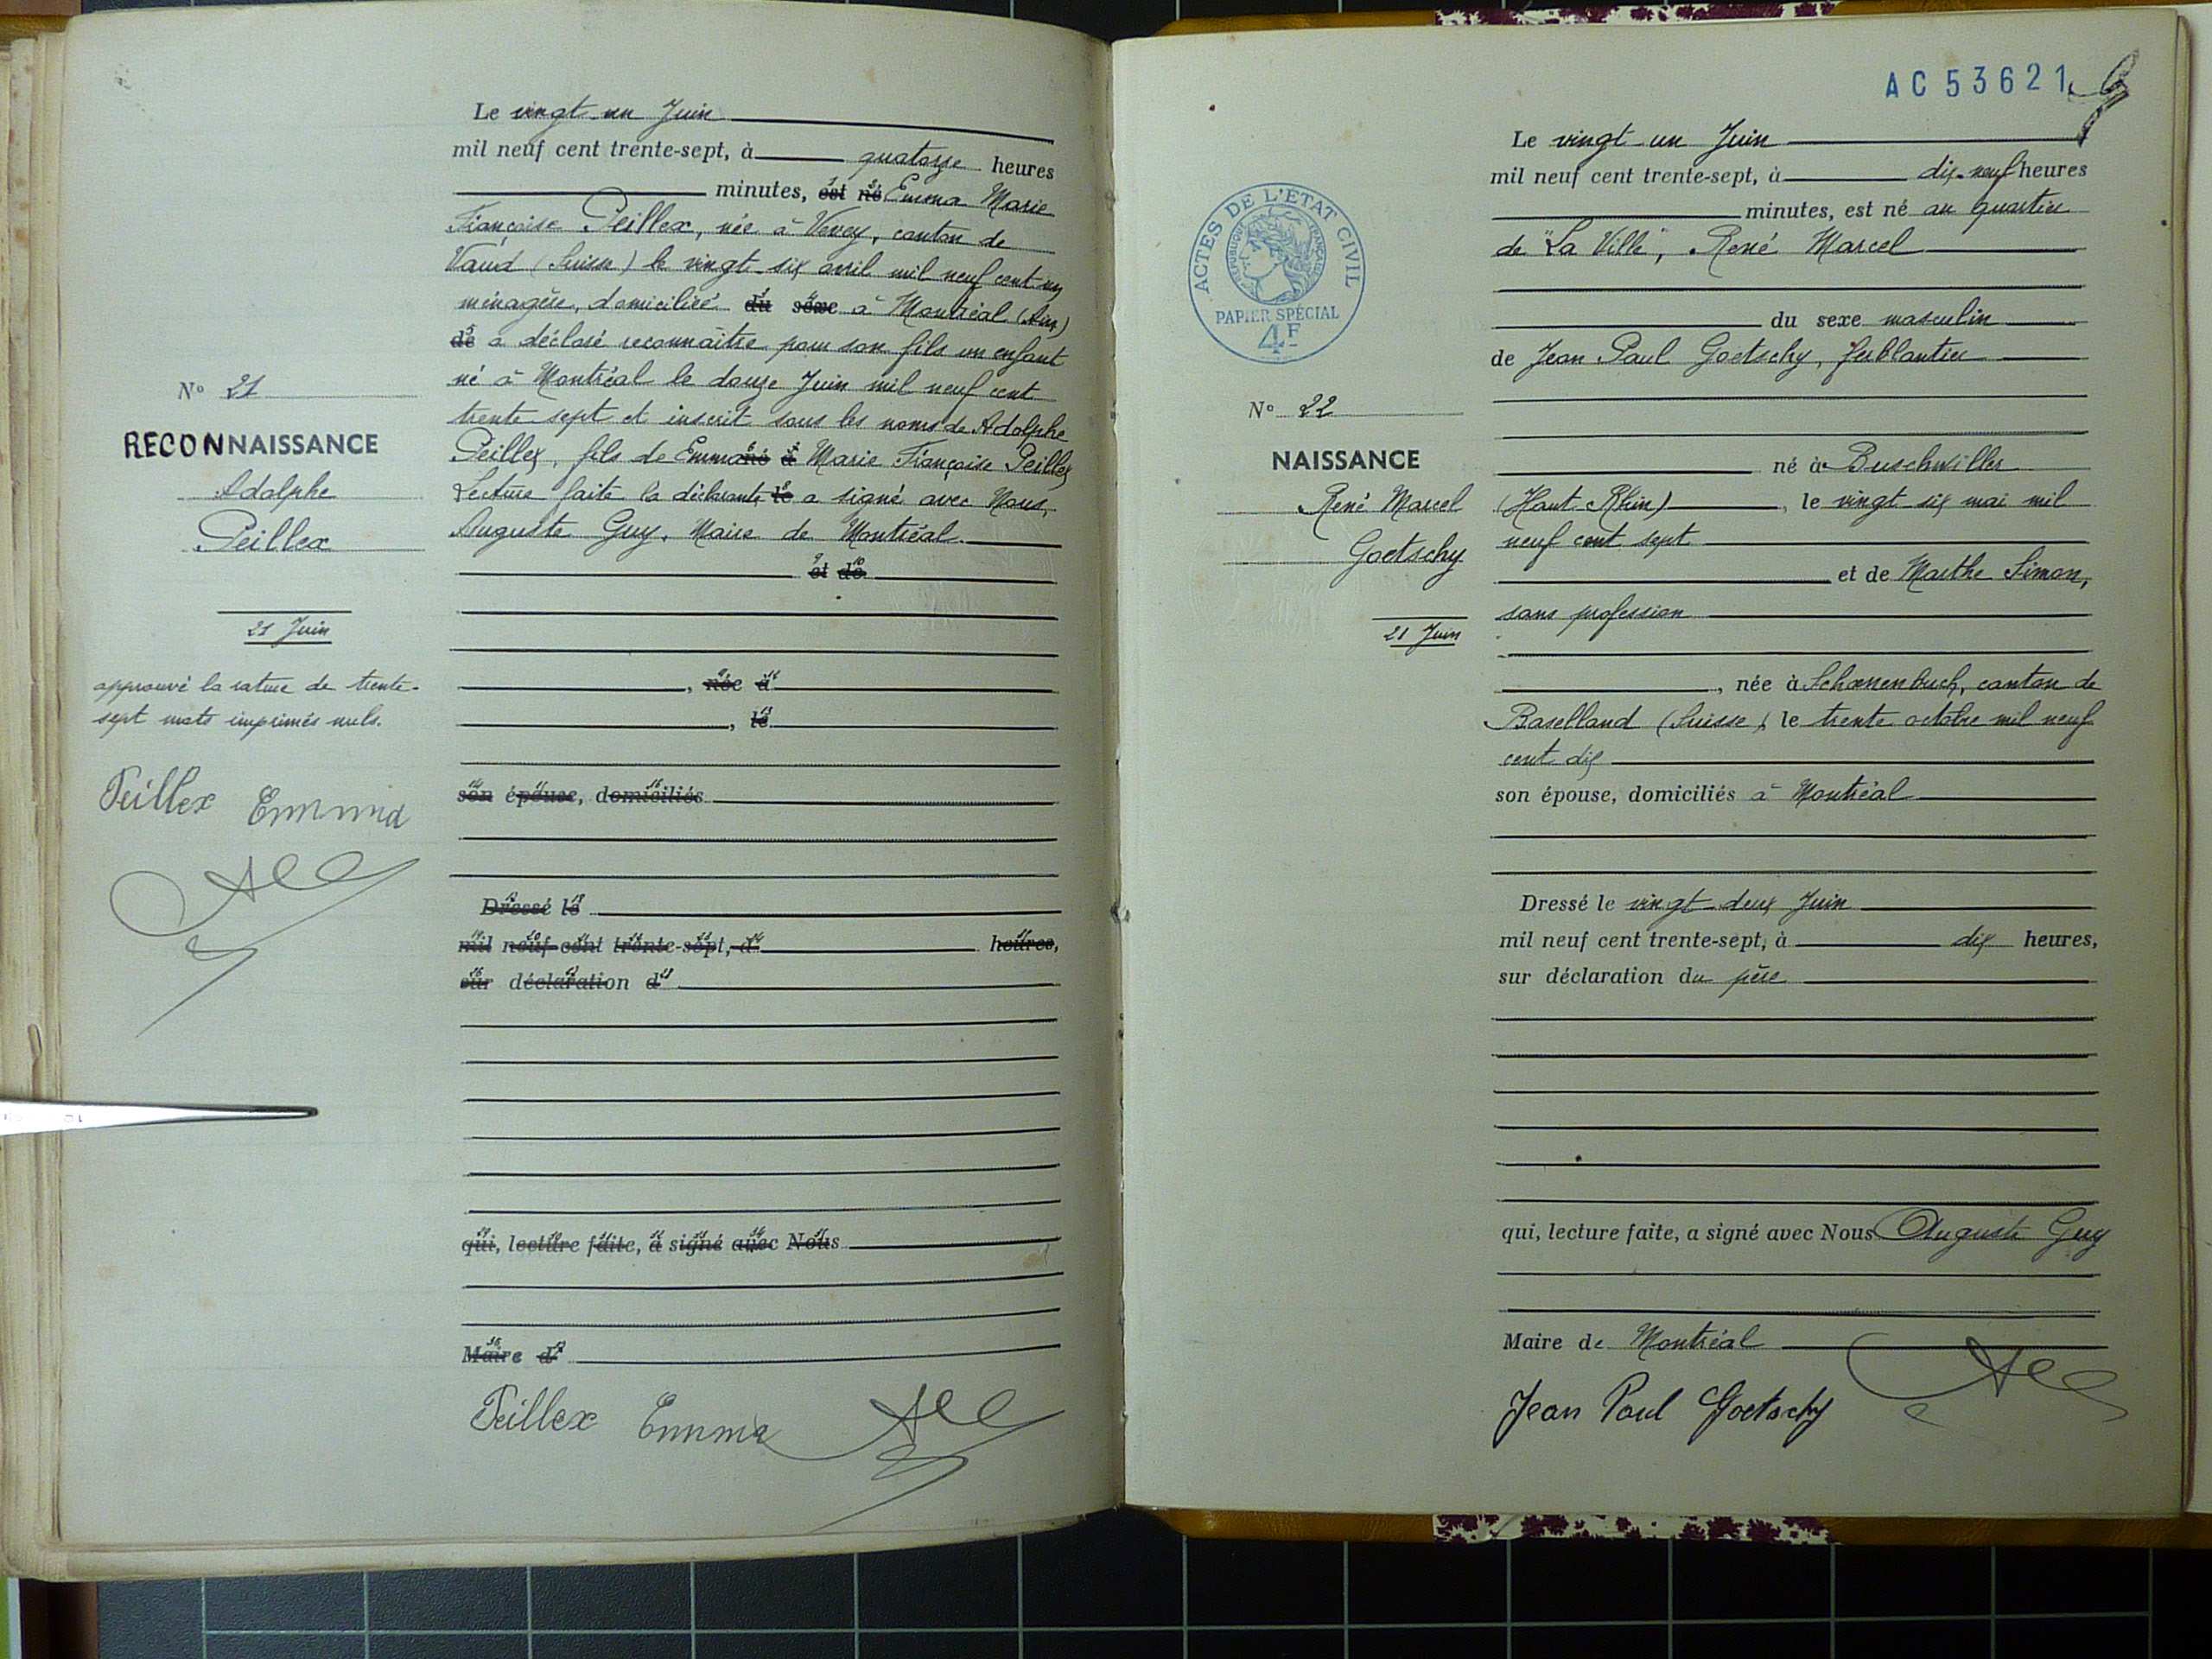 Le vingt un Juin
mil neuf cent trente-sept, à quatorze heures
minutes, est né Emma Marie
Françoise Peillex, née à Vevey, canton de
Vaud (Suisse) le vingt six avril mil neuf cent un
ménagère, domiciliée du sexe à Montréal (Ain)
de a déclaré reconnaître pour son fils un enfant
né à Montréal le douze Juin mil neuf cent
trente sept et inscrit sous les noms de Adolphe
Peillex, fils de Emma né à Marie Françoise Peillex
Lecture faite la déclarante le a signé avec Nous,
Auguste Guy, Maire de Montréal
et de
, née à
, le
son épouse, domiciliés
Dressé le
mil neuf cent trente-sept, à heures,
sur déclaration d
qui, lecture faite, a signé avec Nous
Maire d
Peillex Emma
N° 21
RECONNAISSANCE
Adolphe
Peillex
21 Juin
approuvé la rature de trente-
sept mots imprimés nuls.
Peillex Emma
AC 53621
ACTES DE L'ÉTAT CIVIL
RÉPUBLIQUE FRANÇAISE
PAPIER SPÉCIAL
4F
Le vingt un Juin
mil neuf cent trente-sept, à dix-neuf heures
minutes, est né au quartier
de "La Ville", René Marcel
du sexe masculin
de Jean Paul Goetschy, ferblantier
né à Buschwiller
(Haut Rhin), le vingt six mai mil
neuf cent sept
et de Marthe Simon,
sans profession
, née à Schoenenbuch, canton de
Baselland (Suisse), le trente octobre mil neuf
cent dix
son épouse, domiciliés à Montréal
Dressé le vingt-deux Juin
mil neuf cent trente-sept, à dix heures,
sur déclaration du père
qui, lecture faite, a signé avec Nous Auguste Guy
Maire de Montréal
Jean Paul Goetschy
N° 22
NAISSANCE
René Marcel
Goetschy
21 Juin